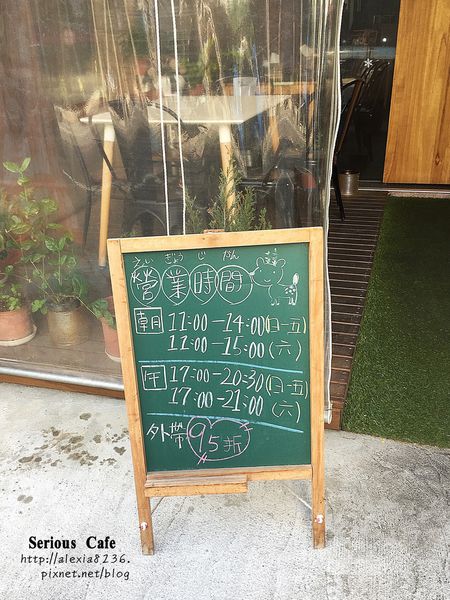 えい ぎょう じ かん
營業時間
朝 11:00-14:00(日-五)
11:00-15:00(六)
午 17:00-20:30(日-五)
17:00-21:00(六)
外帶 95折
Serious Cafe
http://alexia8236.
pixnet.net/blog